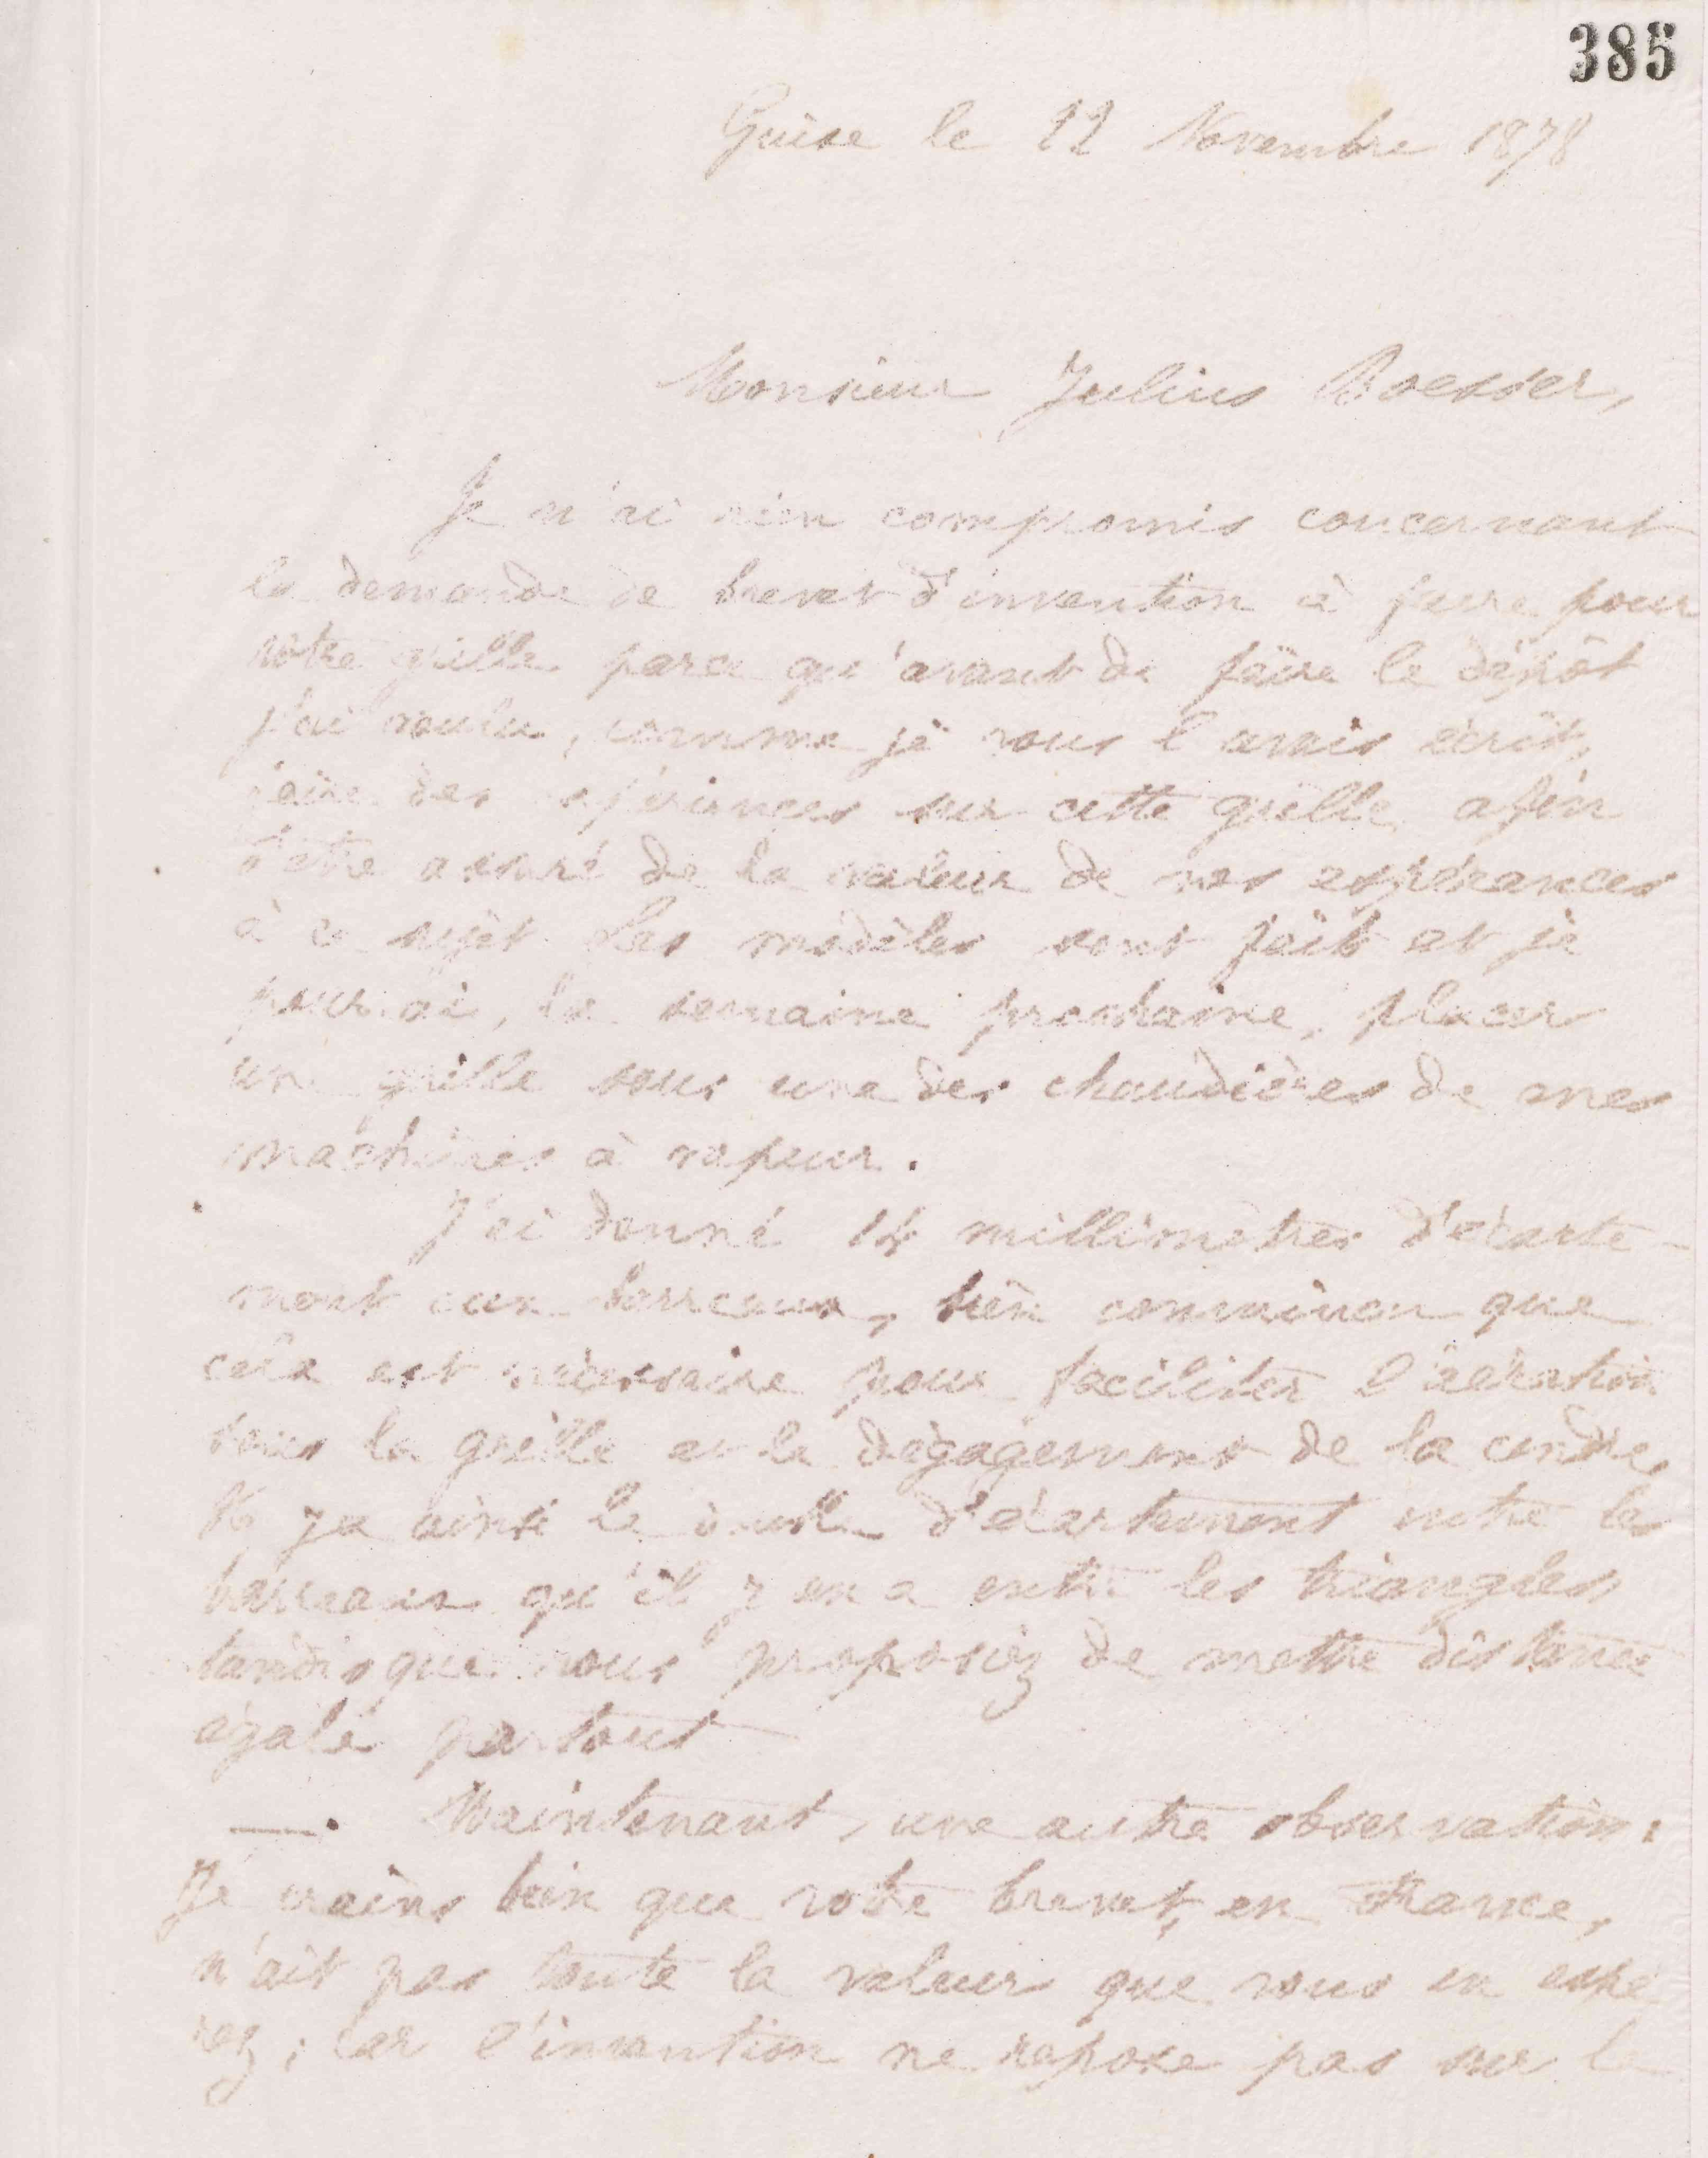 385
Guise le 22 Novembre 1878
Monsieur Julius Boesser,
Je n'ai rien compromis concernant
la demande de brevet d'invention à faire pour
votre grille parce qu'avant de faire le dépôt
j'ai voulu, comme je vous l'avais écrit,
faire des expériences sur cette grille afin
d'être assuré de la valeur de nos espérances
à ce sujet. Les modèles sont faits et je
pourrai, la semaine prochaine, placer
une grille sous une des chaudières de mes
machines à vapeur.
J'ai donné 14 millimètres d'écarte-
ment aux barreaux, bien convaincu que
cela est nécessaire pour faciliter l'aération
sous la grille et le dégagement de la cendre.
Il y a ainsi le double d'écartement entre les
barreaux qu'il y en a entre les triangles
tandis que vous proposiez de mettre distance
égale partout
—. Maintenant, une autre observation:
Je crains bien que votre brevet, en France,
n'ait pas toute la valeur que vous en espé
rez; car l'invention ne repose pas sur le